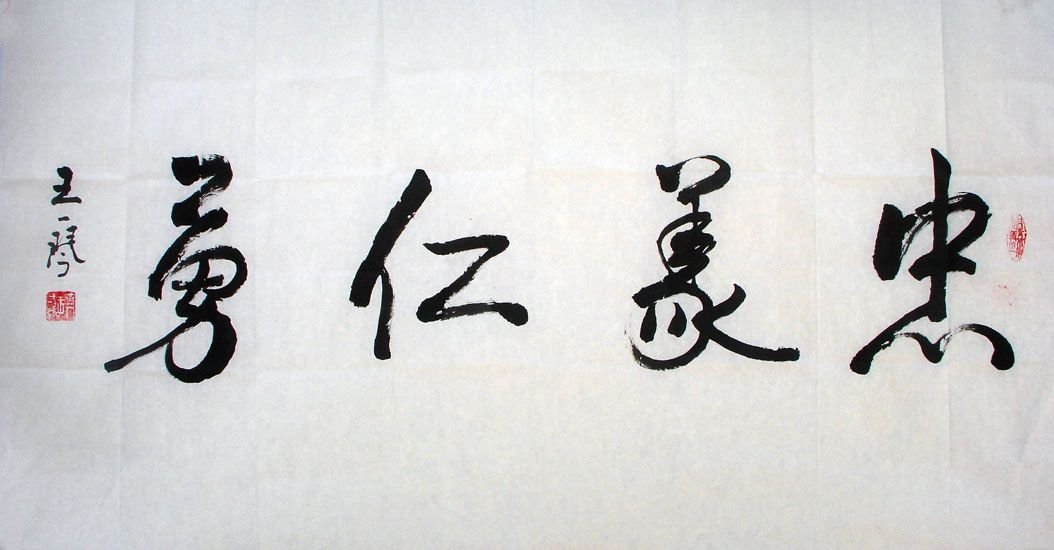 忠義仁勇
王一琴